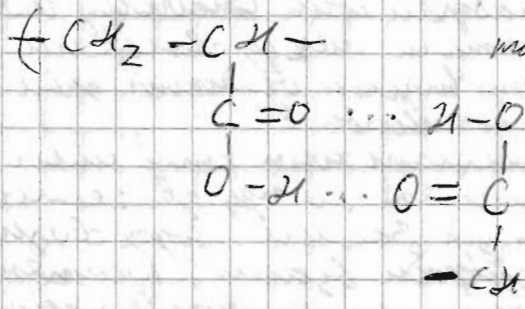 (- CH₂ - CH -
C = O ... H - O
O - H ... O = C
- CH